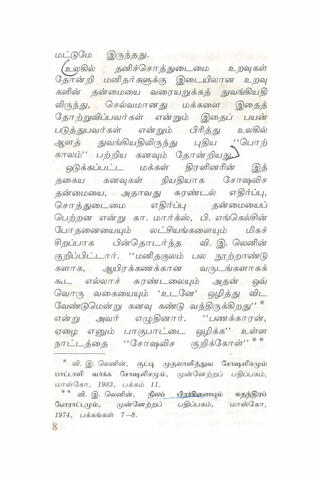 மட்டுமே இருந்தது.
உலகில் தனிச்சொத்துடைமை உறவுகள்
தோன்றி மனிதர்களுக்கு இடையிலான உறவு
களின் தன்மையை வரையறுக்கத் துவங்கியதி
லிருந்து, செல்வமானது மக்களை இதைத்
தோற்றுவிப்பவர்கள் என்றும் இதைப் பயன்
படுத்துபவர்கள் என்றும் பிரித்து உலகில்
ஆளத் துவங்கியதிலிருந்து புதிய “பொற்
காலம்” பற்றிய கனவும் தோன்றியது.
ஒடுக்கப்பட்ட மக்கள் திரளினரின் இத்
தகைய கனவுகள் நியதியாக சோஷலிச
தன்மையை, அதாவது சுரண்டல் எதிர்ப்பு,
சொத்துடைமை எதிர்ப்பு தன்மையைப்
பெற்றன என்று கா. மார்க்ஸ், பி. எங்கெல்சின்
போதனையையும் லட்சியங்களையும் மிகச்
சிறப்பாக பின்தொடர்ந்த வி. இ. லெனின்
குறிப்பிட்டார். “மனிதகுலம் பல நூற்றாண்டு
களாக, ஆயிரக்கணக்கான வருடங்களாகக்
கூட எல்லாச் சுரண்டலையும் அதன் ஒவ்
வொரு வகையையும் ‘உடனே’ ஒழித்து விட
வேண்டுமென்று கனவு கண்டு வந்திருக்கிறது”*
என்று அவர் எழுதினார். “பணக்காரன்,
ஏழை எனும் பாகுபாட்டை ஒழிக்க” உள்ள
நாட்டத்தை “சோஷலிச குறிக்கோள்”**
* வி. இ. லெனின், குட்டி முதலாளித்துவ சோஷலிசமும்
பாட்டாளி வர்க்க சோஷலிசமும், முன்னேற்றப் பதிப்பகம்,
மாஸ்கோ, 1983, பக்கம் 11.
** வி. இ. லெனின், நிலப் பிரச்னையும் சுதந்திரப்
போராட்டமும், முன்னேற்றப் பதிப்பகம், மாஸ்கோ,
1974, பக்கங்கள் 7—8.
8